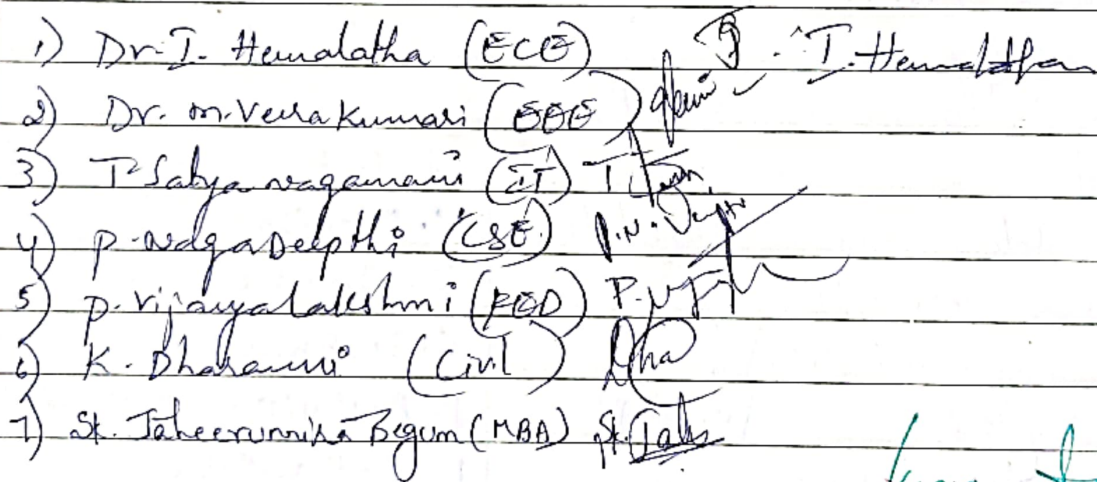 1) Dr. I. Hemalatha (ECE) I. Hemalatha
2) Dr. M. Veera Kumari (EEE)
3) T Satya nagamani (IT) T
4) P. Naga Deepthi (CSE) P.N.
5) P. Vijayalakshmi (FED) P.
6) K. Dharani (Civil) Dha
7) Sk. Taheerunnisa Begum (MBA) Sk. Tahs